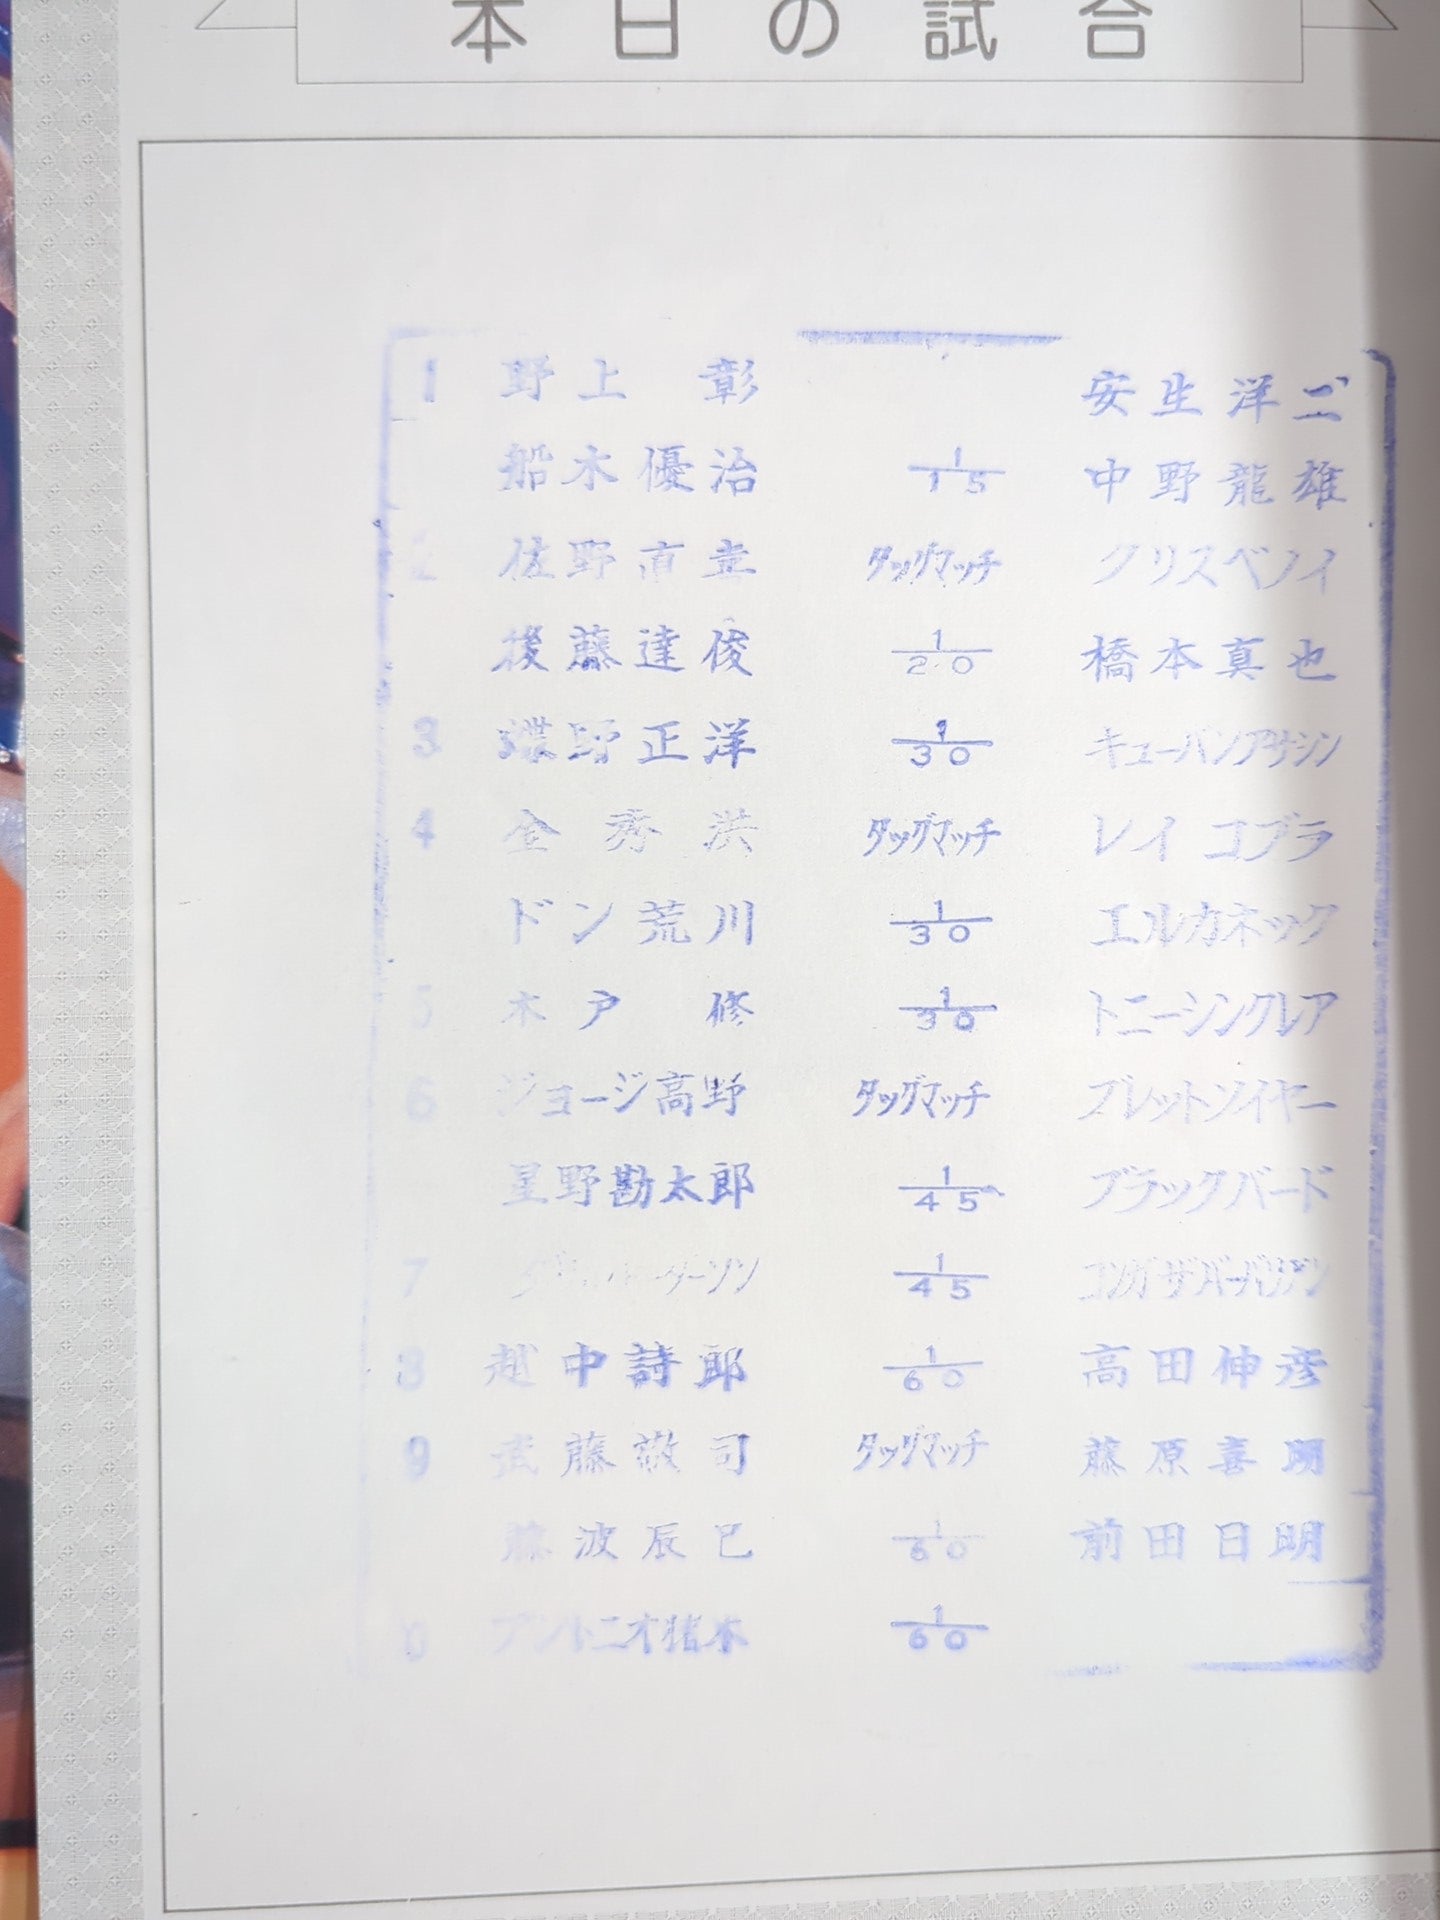 本日の試合
1 野上 彰 安生洋二
船木優治 1/15 中野龍雄
2 佐野直 タッグマッチ クリスベノイ
後藤達俊 1/20 橋本真也
3 蝶野正洋 1/30 キューバンアサシン
4 金秀洪 タッグマッチ レイ コブラ
ドン荒川 1/30 エルカネック
5 木戸 修 1/30 トニーシンクレア
6 ジョージ高野 タッグマッチ ブレットソイヤー
星野勘太郎 1/45 ブラックバード
7 1/45 コンガザバーバリアン
8 越中詩郎 1/60 高田伸彦
9 武藤敬司 タッグマッチ 藤原喜明
藤波辰巳 1/60 前田日明
アントニオ猪木 1/60